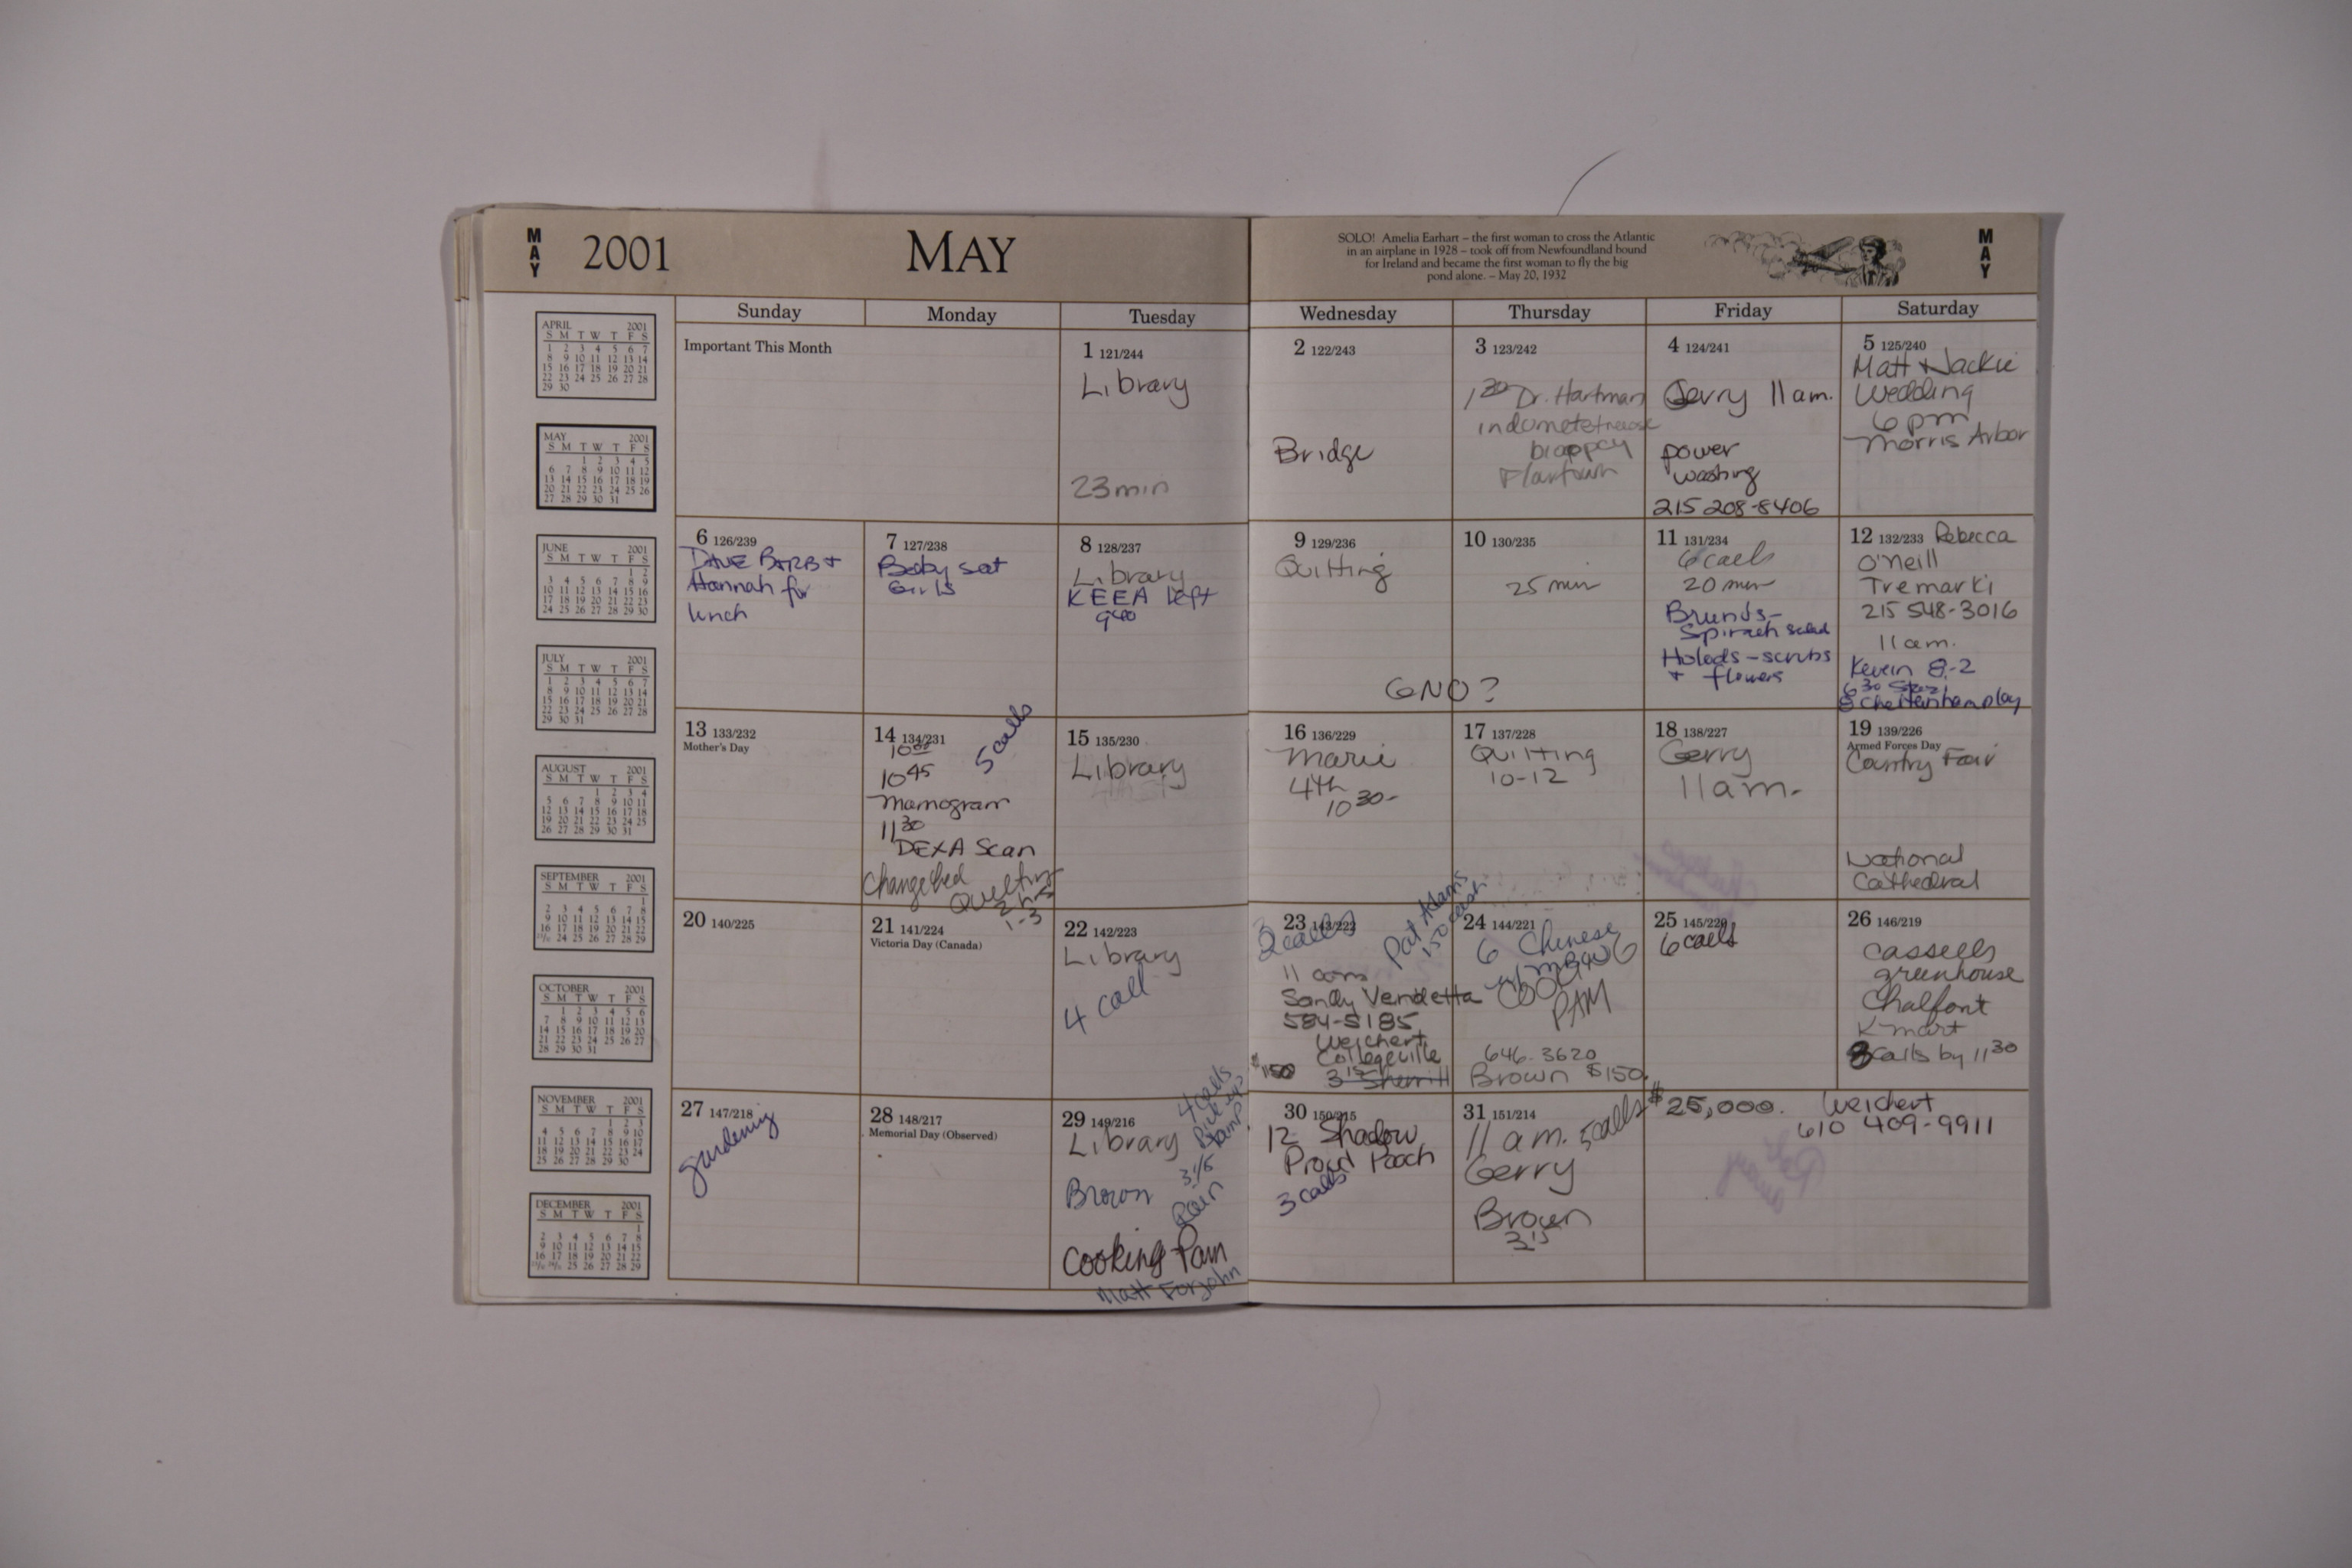 MAY
2001
MAY
SOLO! Amelia Earhart – the first woman to cross the Atlantic
in an airplane in 1928 – took off from Newfoundland bound
for Ireland and became the first woman to fly the big
pond alone. – May 20, 1932
MAY
Sunday
Monday
Tuesday
Wednesday
Thursday
Friday
Saturday
APRIL 2001
S M T W T F S
1 2 3 4 5 6 7
8 9 10 11 12 13 14
15 16 17 18 19 20 21
22 23 24 25 26 27 28
29 30
MAY 2001
S M T W T F S
1 2 3 4 5
6 7 8 9 10 11 12
13 14 15 16 17 18 19
20 21 22 23 24 25 26
27 28 29 30 31
JUNE 2001
S M T W T F S
1 2
3 4 5 6 7 8 9
10 11 12 13 14 15 16
17 18 19 20 21 22 23
24 25 26 27 28 29 30
JULY 2001
S M T W T F S
1 2 3 4 5 6 7
8 9 10 11 12 13 14
15 16 17 18 19 20 21
22 23 24 25 26 27 28
29 30 31
AUGUST 2001
S M T W T F S
1 2 3 4
5 6 7 8 9 10 11
12 13 14 15 16 17 18
19 20 21 22 23 24 25
26 27 28 29 30 31
SEPTEMBER 2001
S M T W T F S
1
2 3 4 5 6 7 8
9 10 11 12 13 14 15
16 17 18 19 20 21 22
23/30 24 25 26 27 28 29
OCTOBER 2001
S M T W T F S
1 2 3 4 5 6
7 8 9 10 11 12 13
14 15 16 17 18 19 20
21 22 23 24 25 26 27
28 29 30 31
NOVEMBER 2001
S M T W T F S
1 2 3
4 5 6 7 8 9 10
11 12 13 14 15 16 17
18 19 20 21 22 23 24
25 26 27 28 29 30
DECEMBER 2001
S M T W T F S
1
2 3 4 5 6 7 8
9 10 11 12 13 14 15
16 17 18 19 20 21 22
23/30 24/31 25 26 27 28 29
Important This Month
1 121/244
Library
23 min
2 122/243
Bridge
3 123/242
1 30 Dr. Hartman
Flourtown
4 124/241
Gerry 11 am.
power
washing
215 208-8406
5 125/240
Matt + Jackie
Wedding
6 pm
Morris Arbor
6 126/239
DAVE BARB +
Hannah for
lunch
7 127/238
Baby sat
Girls
8 128/237
Library
KEEA left
9 40
9 129/236
Quilting
GNO?
10 130/235
25 min
11 131/234
6 calls
20 min
Brunds-
Spinach salad
Holods - scrubs
+ flowers
12 132/233 Rebecca
O'Neill
Tremarki
215 548-3016
11 am.
Kevin 8-2
6 30
8 Cheltenham play
13 133/232
Mother's Day
14 134/231
10 00
5 calls
10 45
Mamogram
11 30
DEXA Scan
Change bed
Quilting
2 hrs
1-3
15 135/230
Library
16 136/229
Marie
4th
10 30-
17 137/228
Quilting
10-12
18 138/227
Gerry
11 am.
19 139/226
Armed Forces Day
Country Fair
National
Cathedral
20 140/225
21 141/224
Victoria Day (Canada)
22 142/223
Library
4 call
23 143/222
2 calls
Pat Adams
150 cash
11 am
Sandy Vendetta
584-5185
Weichert
Collegeville
$150
3 15 Sherrill
24 144/221
6 Chinese
COOL
PAM
646-3620
Brown $150.
25 145/220
6 calls
26 146/219
Cassells
greenhouse
Chalfont
K-mart
8 calls by 11 30
27 147/218
gardening
28 148/217
Memorial Day (Observed)
29 149/216
Library
4 calls
Pick up
lamp?
Brown
3 15
Rain
Cooking Pam
Matt Forjohn
30 150/215
12 Shadow
Proud Pooch
3 calls
31 151/214
11 am. 5 calls
Gerry
Brown
3 15
$25,000. Weichert
610 409-9911